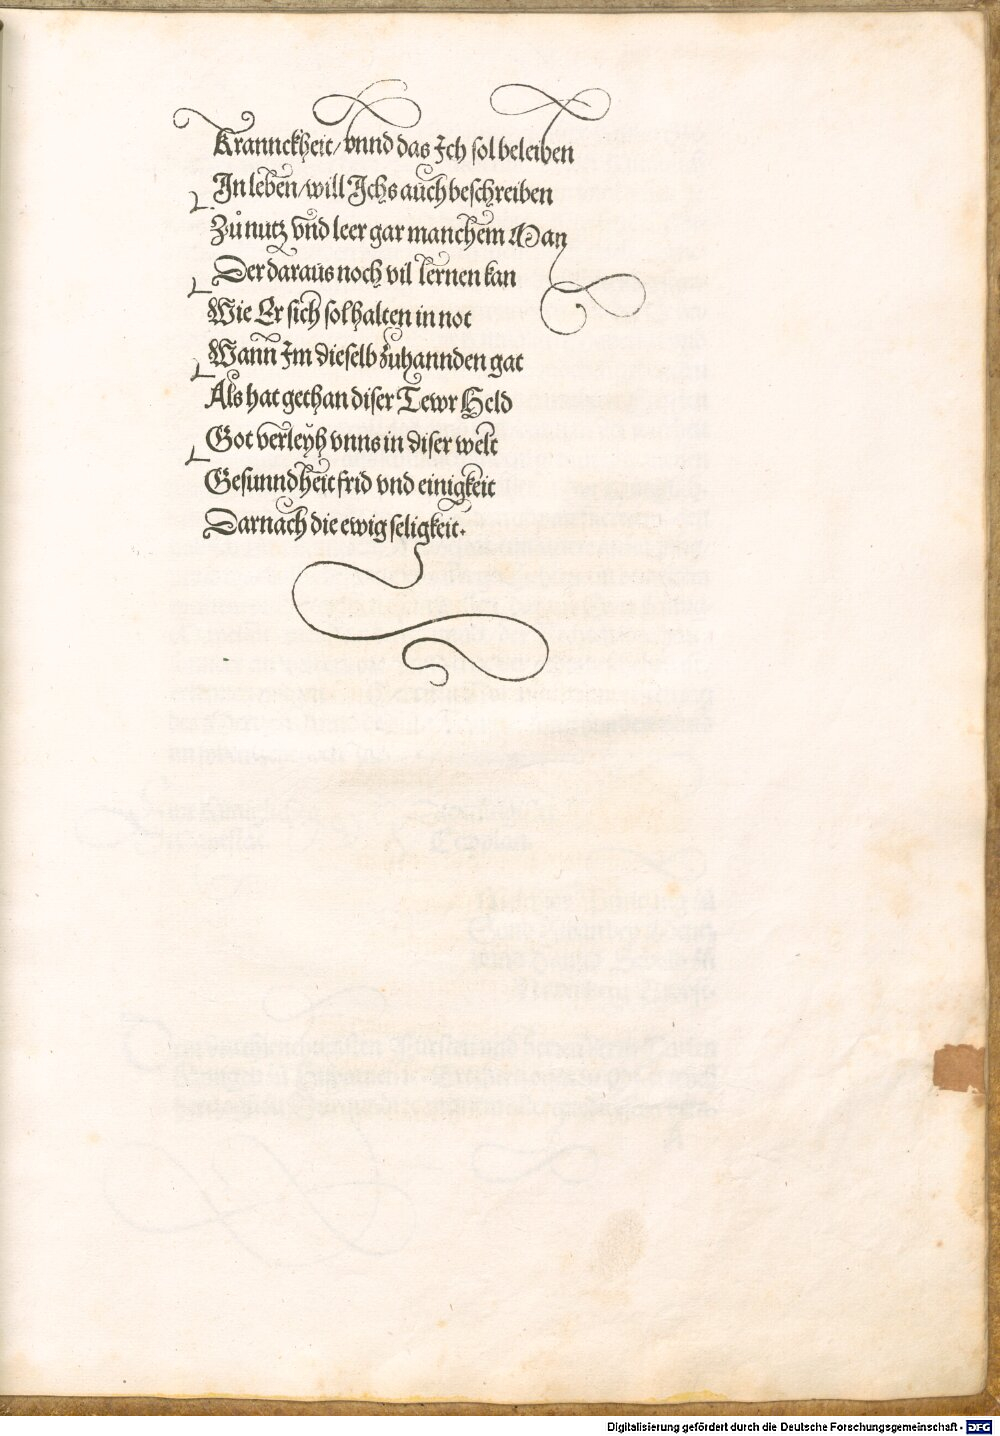 Kranncheit/ vnnd das Ich sol beleiben
In leben/ will Ichs auch beschreiben
Zů nutz vnd leer gar manchem Man
Der daraus noch vil lernen kan
Wie Er sich sol halten in not
Wann Im dieselb zuhannden gat
Als hat gethan diser Tewr Held
Got verleyh vnns in diser welt
Gesunndheit frid vnd einigkeit
Darnach die ewig seligkeit.
Digitalisierung gefördert durch die Deutsche Forschungsgemeinschaft - DFG